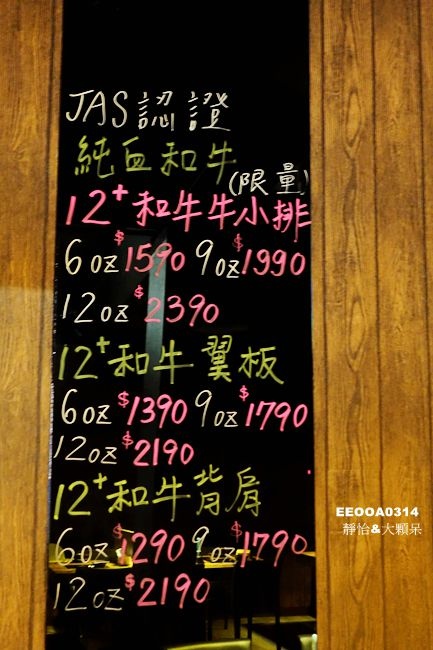 JAS認證
純血和牛
(限量)
12+和牛牛小排
6oz $1590 9oz $1990
12oz $2390
12+和牛翼板
6oz $1390 9oz $1790
12oz $2190
12+和牛背肩
6oz $1290 9oz $1790
12oz $2190
EEOOA0314
靜怡&大顆呆